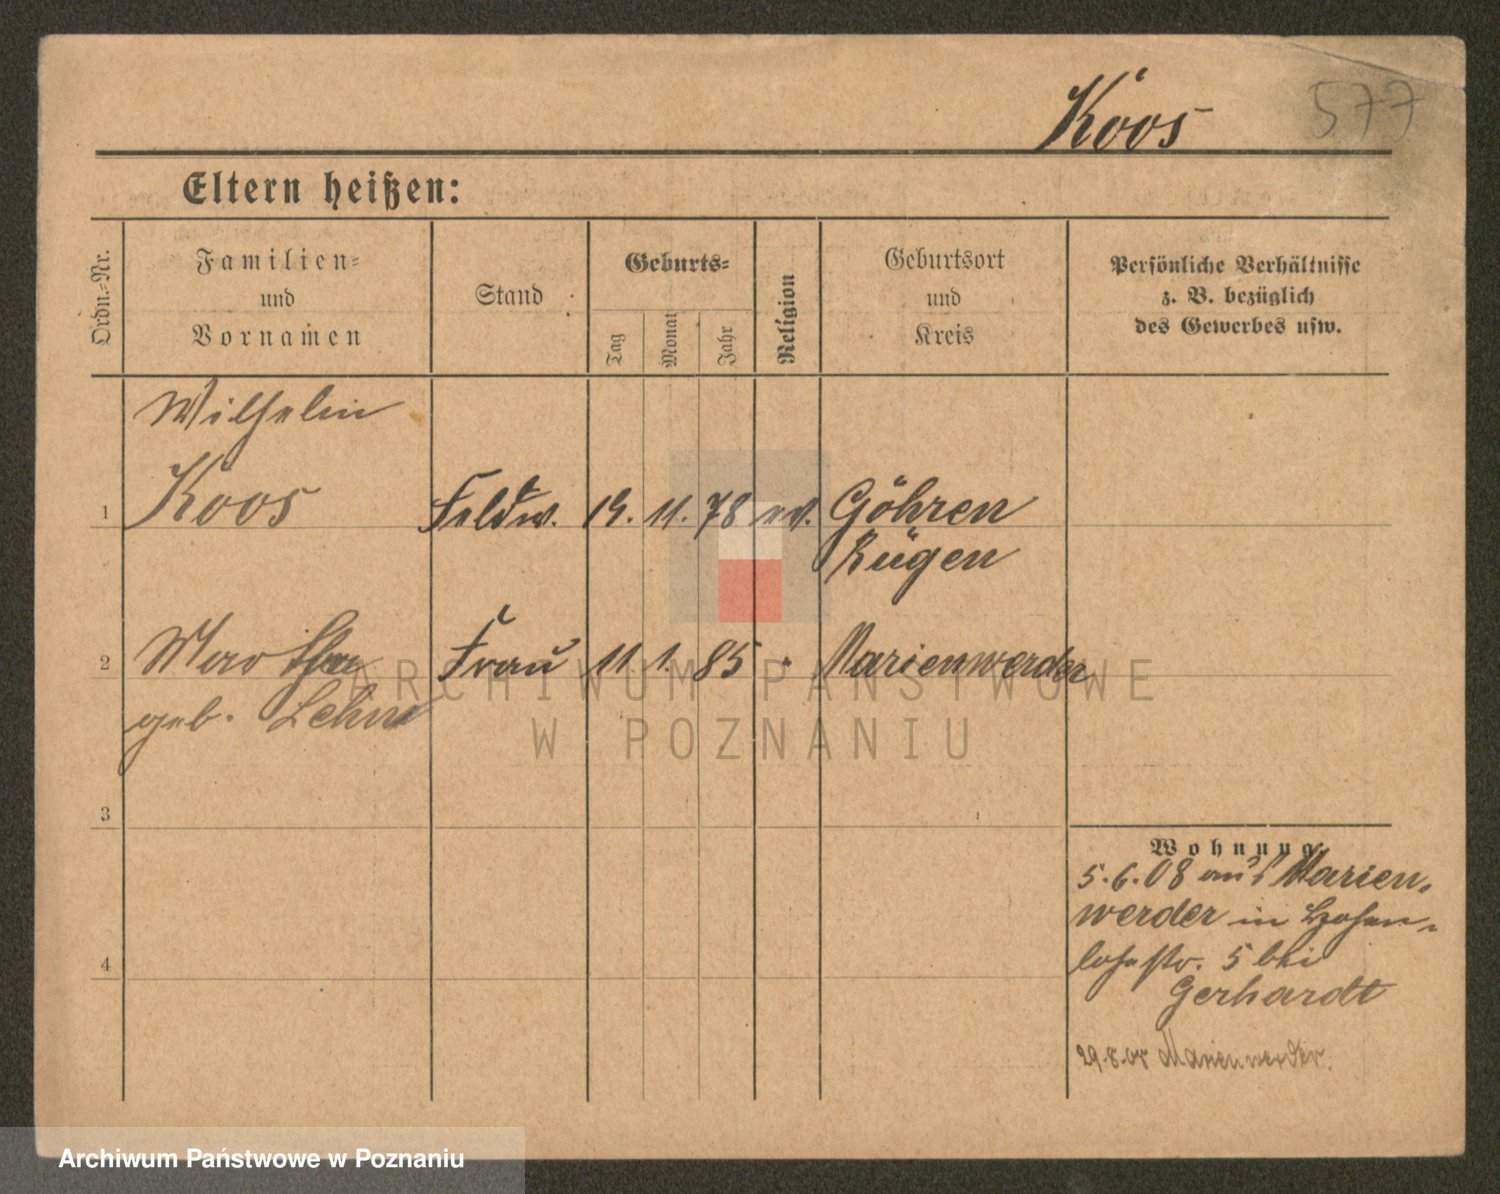 Koos
577
Eltern heißen:
Ordn.-Nr.
Familien-
und
Vornamen
Stand
Geburts-
Tag
Monat
Jahr
Religion
Geburtsort
und
Kreis
Persönliche Verhältnisse
z. B. bezüglich
des Gewerbes usw.
Wilhelm
1 Koos Feldw. 19. 11. 78 ev. Göhren
Rügen
2 Martha Frau 11 1. 85 " Marienwerder
geb. Lehm
ARCHIWUM PAŃSTWOWE
W POZNANIU
3
Wohnung
5.6.08 aus Marien-
werder in Hohen-
lohestr. 5 bei
4
Gerhardt
29.8.08 Marienwerder.
Archiwum Państwowe w Poznaniu